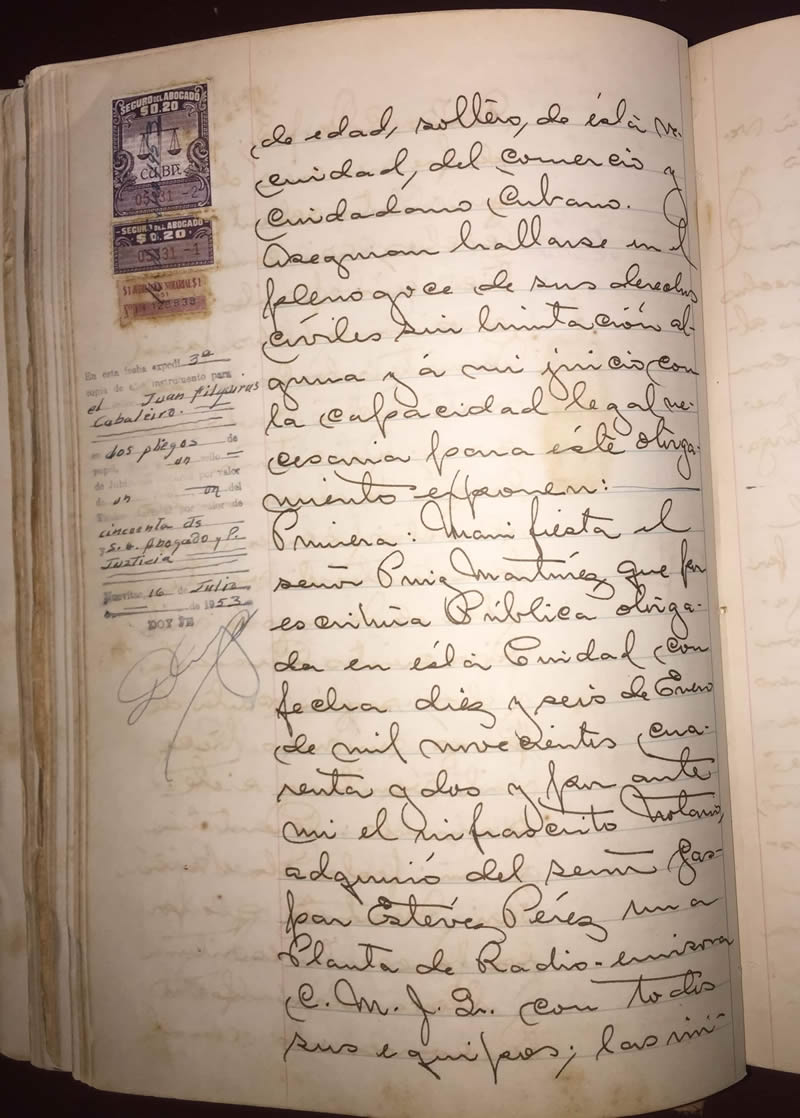 SEGURO DEL ABOGADO
$0.20
CUBA
05931 -2
SEGURO DEL ABOGADO
$0.20
05931 -1
NOTARIAL $1
En esta fecha expedí 3ª
copia de este instrumento para
el Juan Filgueras
Cabaleiro.
dos pliegos de
un sello
de Jubi por valor
de un un del
cincuenta cts
y S. de Abogado y P.
Justicia
Nuevitas 16 de Julio
de 1953
DOY FE
de edad, soltero, de ésta ve-
cindad, del comercio y
ciudadano Cubano.
Aseguran hallarse en el
pleno goce de sus derechos
cíviles sin limitación al-
guna y á mi juicio con
la capacidad legal ne-
cesaria para éste otorga-
miento exponen:
Primera: Manifiesta el
señor Puig Martínez que por
escritura Pública otorga-
da en ésta Ciudad con
fecha diez y seis de Enero
de mil novecientos cua-
renta y dos y por ante
mi el infrascrito Notario,
adquirió del señor Gas-
par Estévez Pérez una
Planta de Radio-emisora
C. M. J. Q. con todos
sus equipos; las mi-